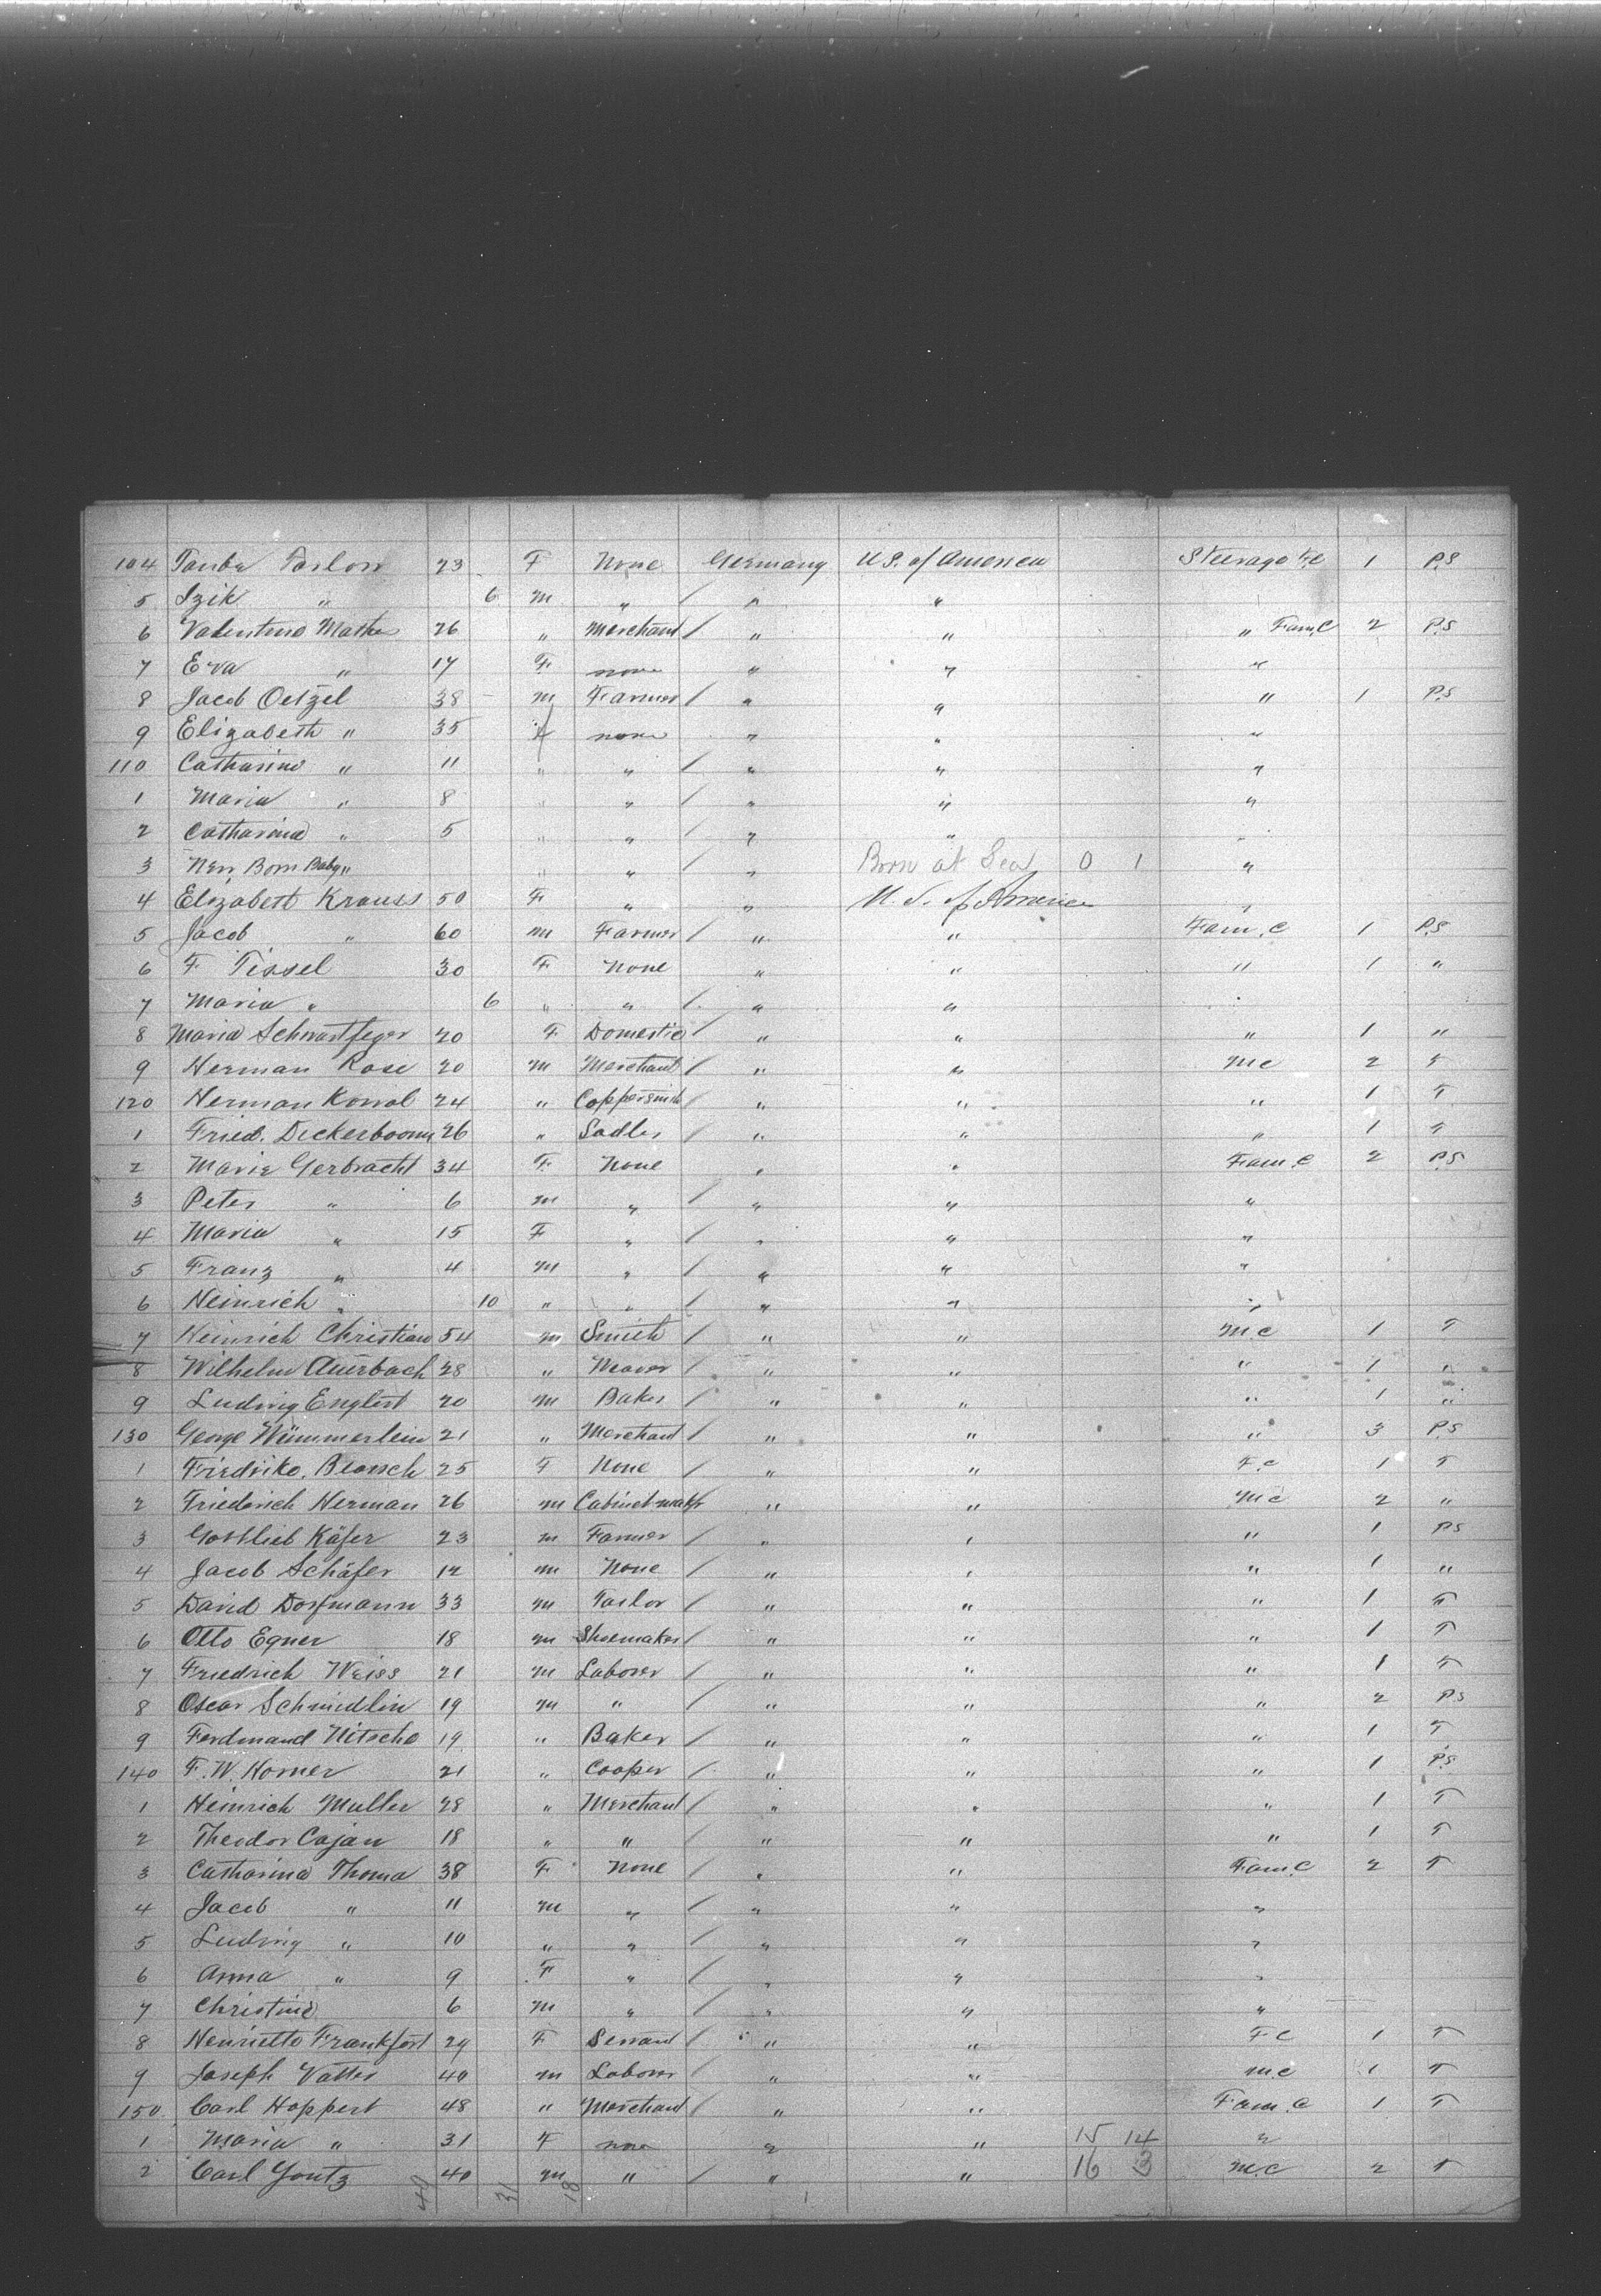 104 23 F None Germany U.S. of America Steerage F.C 1 P.S
5 Izik " 6 M " / " "
6 Valentino Mathe 26 " Merchant / " " " Fam.C 2 P.S
7 Eva " 17 F none " " "
8 Jacob Oetzel 38 - M Farmer / " " " 1 P.S
9 Elizabeth " 35 f none " " "
110 Catharine " 11 " " / " " "
1 Maria " 8 " " / " " "
2 Catharina " 5 " " / " " "
3 New Born Baby " " " / " Born at Sea 0 1 "
4 Elizabeth Krauss 50 F " " U.S. of America "
5 Jacob " 60 M Farmer / " " Fam.C 1 P.S
6 F Tissel 30 F None " " " 1 "
7 Maria " 6 " " / " " "
8 Maria Schwartfeger 20 F Domestic / " " " 1 "
9 Herman Rose 20 M Merchant / " " M C 2 T
120 Herman 24 " Coppersmith " " " 1 T
1 Fried. Dickerboom 26 " Sadler / " " " 1 T
2 Marie Gerbracht 34 F None " " Fam.C 2 P.S
3 Peter " 6 M " / " " "
4 Maria " 15 F " / " " "
5 Franz " 4 M " / " " "
6 Heinrich " 10 " " / " " "
7 Heinrich Christian 54 M Smith / " " M.C 1 T
8 Wilhelm Auerbach 28 " / " " " 1 "
9 Ludwig Englert 20 M Baker / " " " 1 "
130 George Nümmerlein 21 " Merchant / " " " 3 P.S
1 Friedrike 25 F None / " " F.C 1 T
2 Friederich Herman 26 M Cabinet-maker " " M C 2 "
3 Gottlieb Käfer 23 M Farmer / " " " 1 P.S
4 Jacob Schäfer 12 M None / " " " 1 "
5 David Dorfmann 33 M Tailor / " " " 1 T
6 Otto Egner 18 M Shoemaker / " " " 1 T
7 Friedrich Weiss 21 M Laborer / " " " 1 T
8 Oscar Schmidlin 19 M " / " " " 2 P.S
9 Ferdinand Nitsche 19 " Baker / " " " 1 T
140 F. W. Horner 21 " Cooper / " " " 1 P.S
1 Heinrich Muller 28 " Merchant / " " " 1 T
2 Theodor Cajan 18 " " / " " " 1 T
3 Catharina Thoma 38 F None / " " Fam.C 2 T
4 Jacob " 11 M " / " " "
5 Ludwig " 10 " " / " " "
6 Anna " 9 F " / " " "
7 Christine 6 M " / " " "
8 Henriette Frankfort 29 F Servant / " " F C 1 T
9 Joseph Vatter 40 M Laborer / " " M C 1 T
150 Carl Hoppert 48 " Merchant / " " Fam.C 1 T
1 Maria " 31 F none " " 15 14 "
2 Carl Goutz 40 M " / " " 16 13 M.C 2 T
31 18